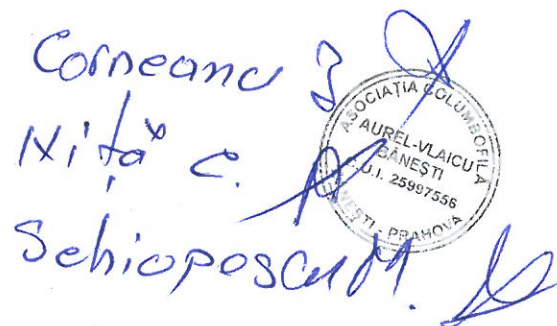 Corneanu I
Niță C.
Schiopescu M.
ASOCIAȚIA COLUMBOFILĂ
AUREL-VLAICU
BĂNEȘTI
C.U.I. 25997556
BĂNEȘTI - PRAHOVA